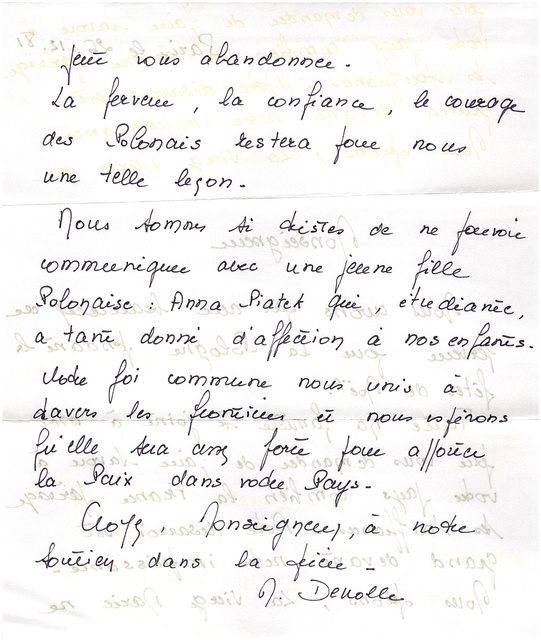 peut vous abandonner.
La ferveur, la confiance, le courage
des Polonais restera pour nous
une telle leçon.
Nous sommes si tristes de ne pouvoir
communiquer avec une jeune fille
Polonaise : Anna Piatek qui, étudiante,
a tant donné d'affection à nos enfants.
Notre foi commune nous unis à
travers les frontières et nous espérons
qu'elle sera assez forte pour apporter
la Paix dans votre Pays.
Croyez, Monseigneur, à notre
soutien dans la prière.